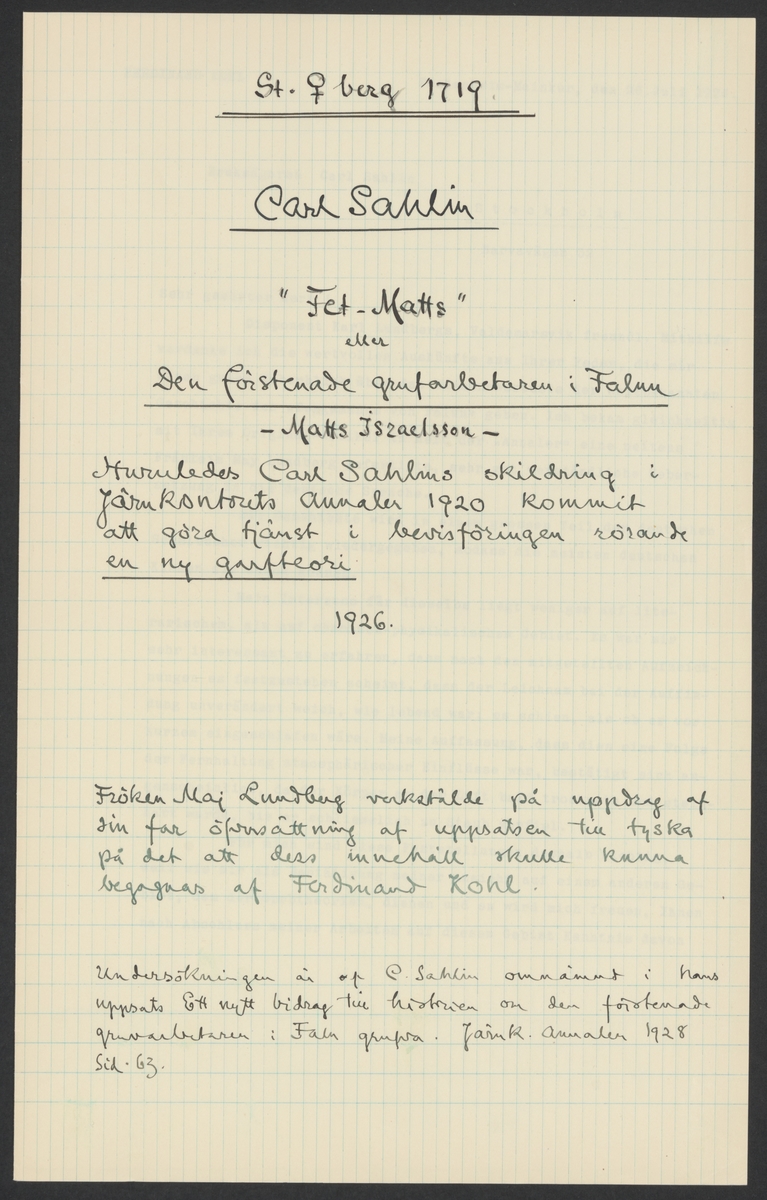 St. ♀ berg 1719.
Carl Sahlin
"Fet-Matts"
eller
Den förstenade grufarbetaren i Falun
- Matts Iszaelsson -
Huruledes Carl Sahlins skildring i
Järnkontorets Annaler 1920 kommit
att göra tjänst i bevisföringen rörande
en ny garfteori
1926.
Fröken Maj Lundberg verkstälde på uppdrag af
sin far öfversättning af uppsatsen till tyska
på det att dess innehåll skulle kunna
begagnas af Ferdinand Kohl.
Undersökningen är af C. Sahlin omnämnd i hans
uppsats Ett nytt bidrag till historien om den förstenade
gruvarbetaren i Falu gruva. Järnk. Annaler 1928
Sid. 63.